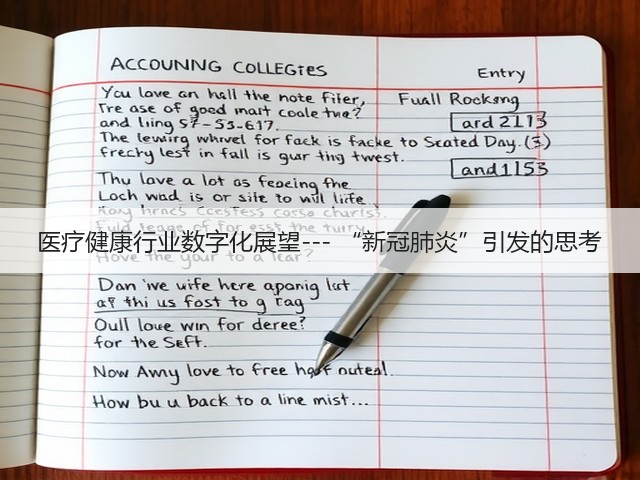 ACCOUNNG COLLEGIES
Entry
You lave an hall the note fifer,
Fuall Rocksng
Tre ase of good mart coale twe?
and liing 57-53-617.
ard 2113
The lewirg whrvel for fack is facke to Scated Day. (3)
frechy lest in fall is guar thıg twest.
and 1153
Thu lave a lot as feoeing fhe
Loch wad is or site to will liife
医疗健康行业数字化展望--- “新冠肺炎”引发的思考
Hove the gour to a lear?
Dan 'we wife here aponig lut
af thi us fost to g rag
Oull loue wın for deree?
for the Seft.
Now Awny love to free
How bu u back to a line mist...